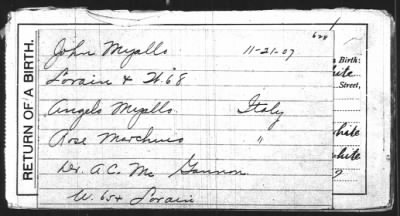 RETURN OF A BIRTH.
628
John Myalls 11-21-07
Birth:
Lorain & W. 68
hite
Street,
Angelo Myalls. Italy
Rose Marchuis "
hite
hite
Dr. A.C. Mc Gannon
W. 65 & Lorain